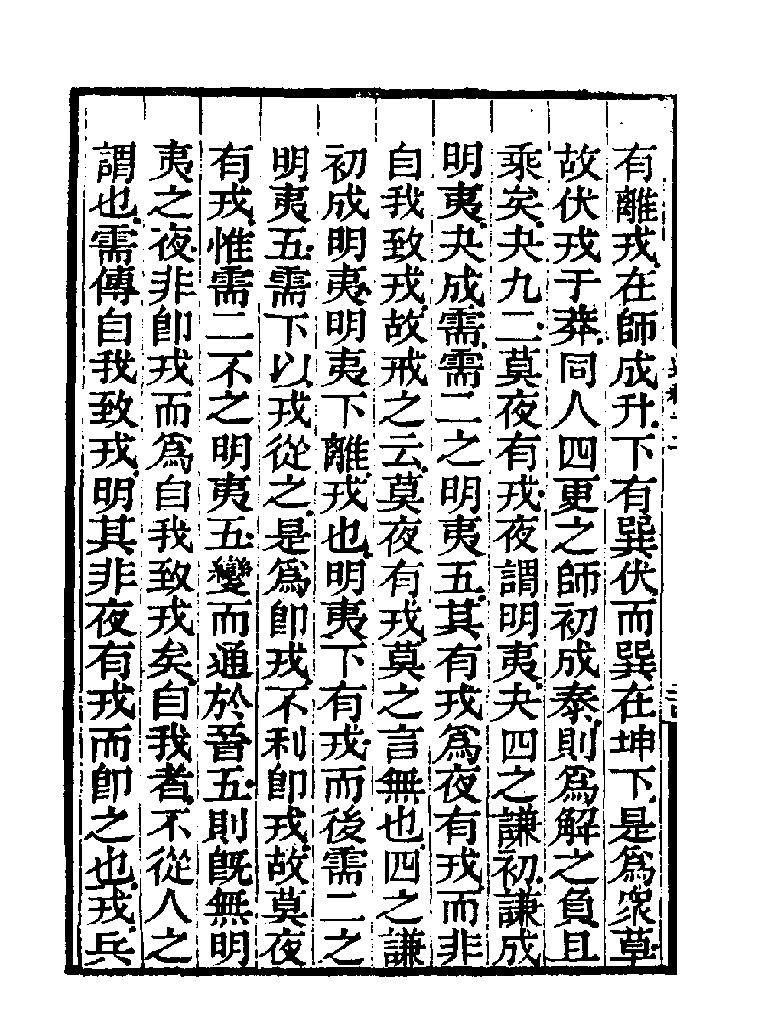 有離戎在師成升下有巽伏而巽在坤下是爲衆草
故伏戎于莽同人四更之師初成泰則爲解之負且
乘矣夬九二莫夜有戎夜謂明夷夬四之謙初謙成
明夷夬成需需二之明夷五其有戎爲夜有戎而非
自我致戎故戒之云莫夜有戎莫之言無也四之謙
初成明夷明夷下離戎也明夷下有戎而後需二之
明夷五需下以戎從之是爲卽戎不利卽戎故莫夜
有戎惟需二不之明夷五變而通於晉五則旣無明
夷之夜非卽戎而爲自我致戎矣自我者不從人之
謂也需傳自我致戎明其非夜有戎而卽之也戎兵